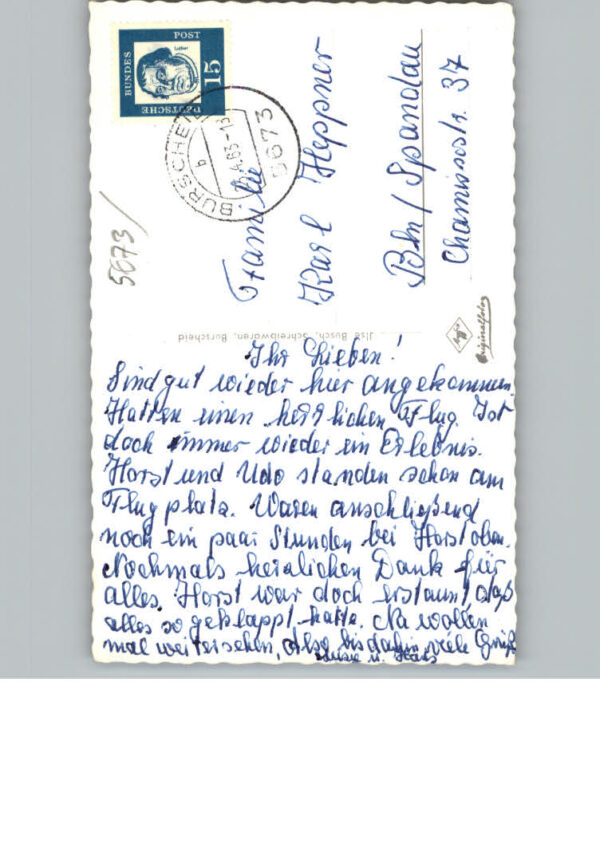 BUNDES
POST
Luther
15
DEUTSCHE
BURSCHEID
b
.4.63-13
5673
5673/
Familie
Karl Heppner
Bln/Spandau
Chamissostr. 37
Jlse Busch, Schreibwaren, Burscheid
Originalfoto
Ihr Lieben!
Sind gut wieder hier angekommen.
Hatten einen herrlichen Flug. Ist
doch immer wieder ein Erlebnis.
Horst und Udo standen schon am
Flugplatz. Waren anschließend
noch ein paar Stunden bei Horst oben.
Nochmals herzlichen Dank für
alles. Horst war doch erstaunt, daß
alles so geklappt hatte. Na wollen
mal weitersehen, Also bis dahin viele Grüße
u. Hans